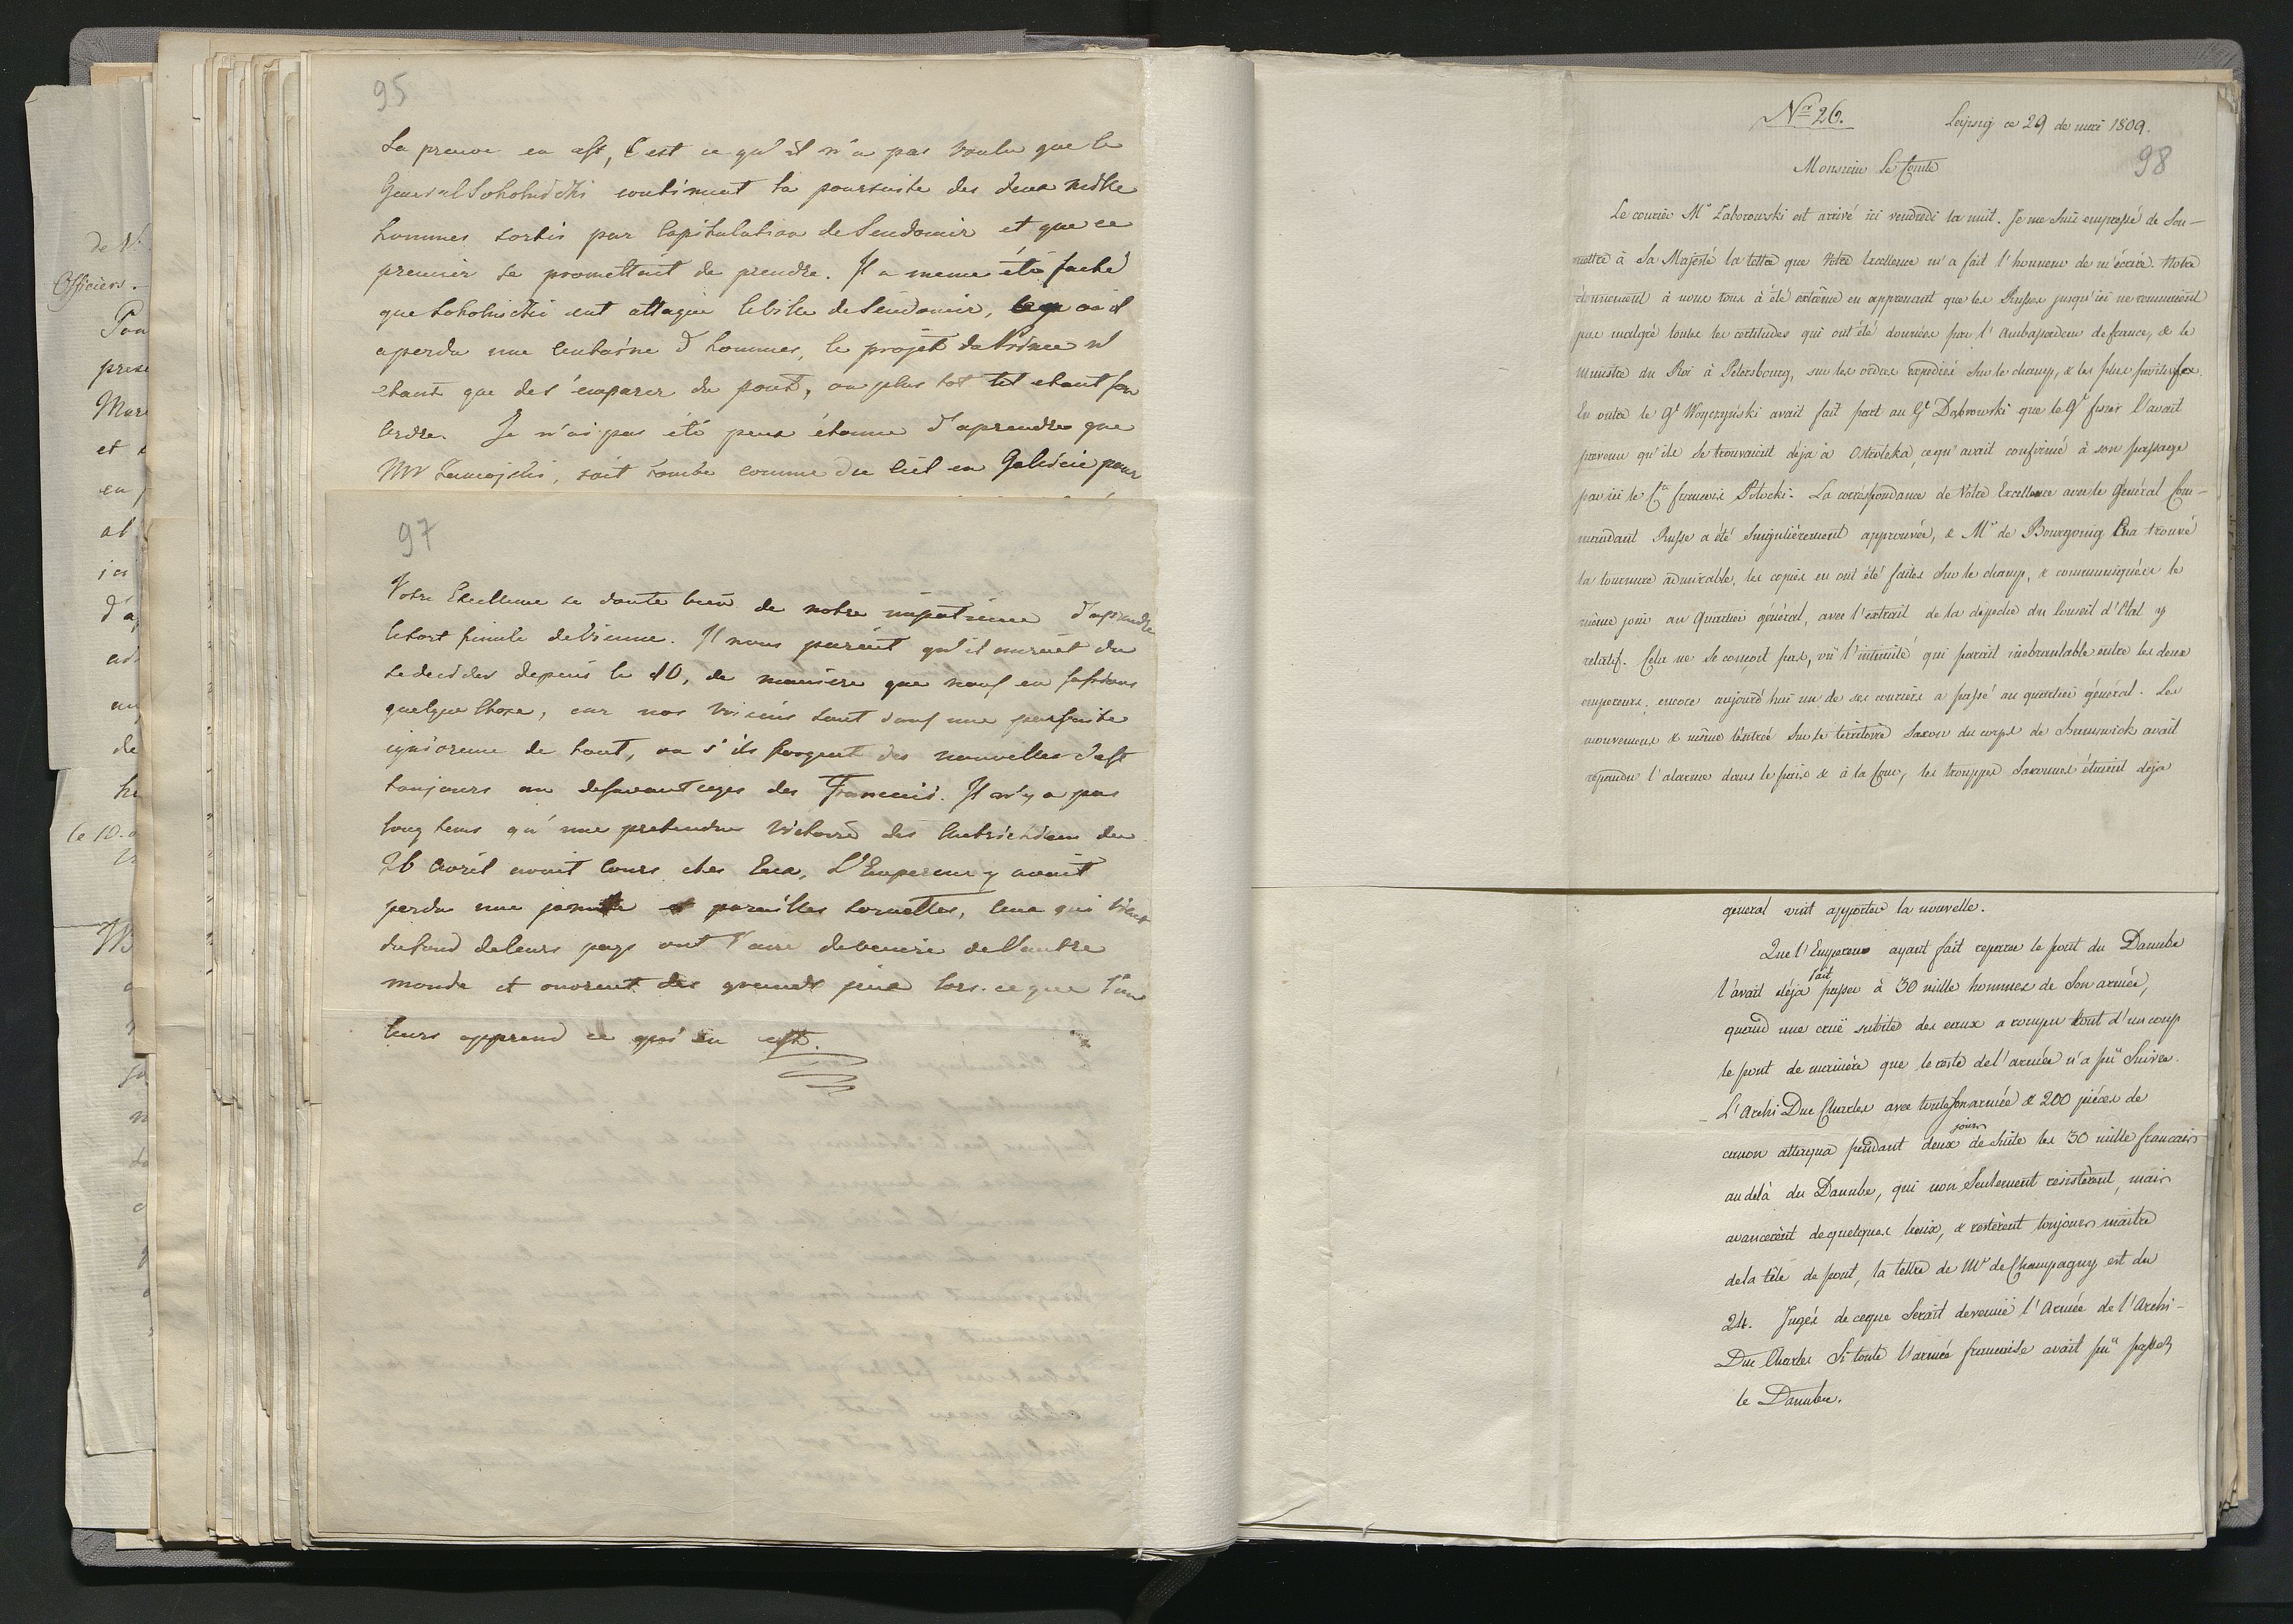 de N
Officiers.
Pou
prise
Mar
et
en
ab
ici
de
le 10.
95
La preuve en est, C'est ce qu'il n'a pas voulu que le
General Sokolnicki continuat la poursuite des deux mille
hommes sortis par Capitulation de Sendomir et que ce
premier se promettoit de prendre. Il a meme été faché
que Sokolnicki eut attaqué la Ville de Sendomir, où il
a perdu une Centaine d'hommes, le projet du Prince n'
etant que de s'emparer du pont, ou plus tot tel etant son
Ordre. Je n'ai pas été peux étonné d'aprendre que
Mr Zamojski, soit tombé comme du Ciel en Galicie pour
97
Votre Excellence se doute bien de notre impatience d'aprendre
le Sort finale de Vienne. Il nous paroit qu'il auroit du
se decider depuis le 10, de maniere que nous en sussions
quelque Chose, car nos Voisins sont dans une parfaite
ignorence de tout, ou s'ils forgent des nouvelles c'est
toujours au desavantages des Francais. Il n'y a pas
long tems qu'une pretendue Victoire des Autrichiens du
26 Avril avoit Cours chez Eux, L'Empereur y avoit
perdu une jambe et pareilles sornettes, Ceux qui vienent
du fond de leurs pays ont l'air de venir de l'autre
monde et ouvrent des grands yeux lors-ce que l'on
leurs apprend ce qui en est.
Nr 26.
Leipsig ce 29 de mai 1809.
98
Monsieur Le Comte
Le courier Mr Zaborowski est arrivé ici vendredi la nuit. Je me suis empressé de Sou-
mettre à Sa Majesté la lettre que Votre Excellence m'a fait l'honneur de m'écrire. Notre
étonnement à nous tous à été extrême en apprenant que les Russes jusqu'ici ne remuoient
pas malgré toutes les certitudes qui ont été données par l'Ambassadeur de france, & le
Ministre du Roi à Petersbourg, sur les ordres expédiés sur le champ, & les plus positifs.
En outre le Gl Woyczyński avait fait part au Gl Dąbrowski que le Gl avait
prevenu qu'ils se trouvaient déja à Ostrolęka, ce qu'avait confirmé à son passage
par ici le Cte francois Potocki. La correspondance de Votre Excellence avec le Général Com-
mandant Russe a été Singulièrement approuvée, & Mr de Bourgoing en a trouvé
la tournure admirable, les copies en ont été faites sur le champ, & communiquées le
même jour au Quartier général, avec l'extrait de la depeche du Conseil d'Etat y
relatif. Cela ne se conçoit pas, vû l'intimité qui parait inebranlable entre les deux
empereurs. encore aujourd'hui un de ses couriers a passé au quartier général. Les
mouvemens & même l'entrée sur le territoire Saxon du corps de Brunswick avait
répandu l'alarme dans le pais & à la Cour, les trouppes Saxonnes étaient deja
general vint apporter la nouvelle.
Que l'Empereur ayant fait reparer le pont du Danube
l'avait déja fait passer à 30 mille hommes de Son armée,
quand une crüe subite des eaux a rompu tout d'un coup
le pont de manière que le reste de l'armée n'a pû Suivre.
L'Archi Duc Charles avec toute Son armée & 200 pièces de
canon attaqua pendant deux jours de Suite les 30 mille francais
au delà du Danube, qui non Seulement resistèrent, mais
avancerent de quelques lieux, & restèrent toujours maitre
de la tête de pont, la lettre de Mr de Champagny est du
24. Jugés de ce que Serait devenüe l'Armée de l'Archi-
Duc Charles Si toute l'armée francaise avait pû passer
le Danube.